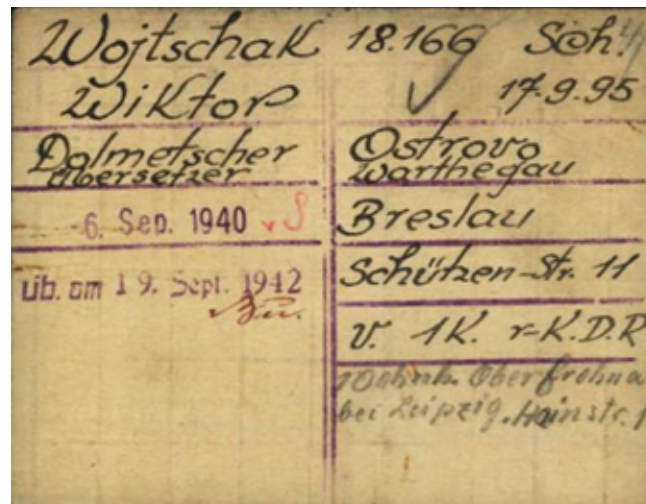 Wojtschak 18.166 Sch.
Wiktor 17.9.95
Dolmetscher
Übersetzer
Ostrovo
Warthegau
-6. Sep. 1940
Breslau
üb. am 19. Sept. 1942
Schützen-Str. 11
v. 1K. r=K.D.R
Oberfrohna
bei Leipzig. Hainstr. 1